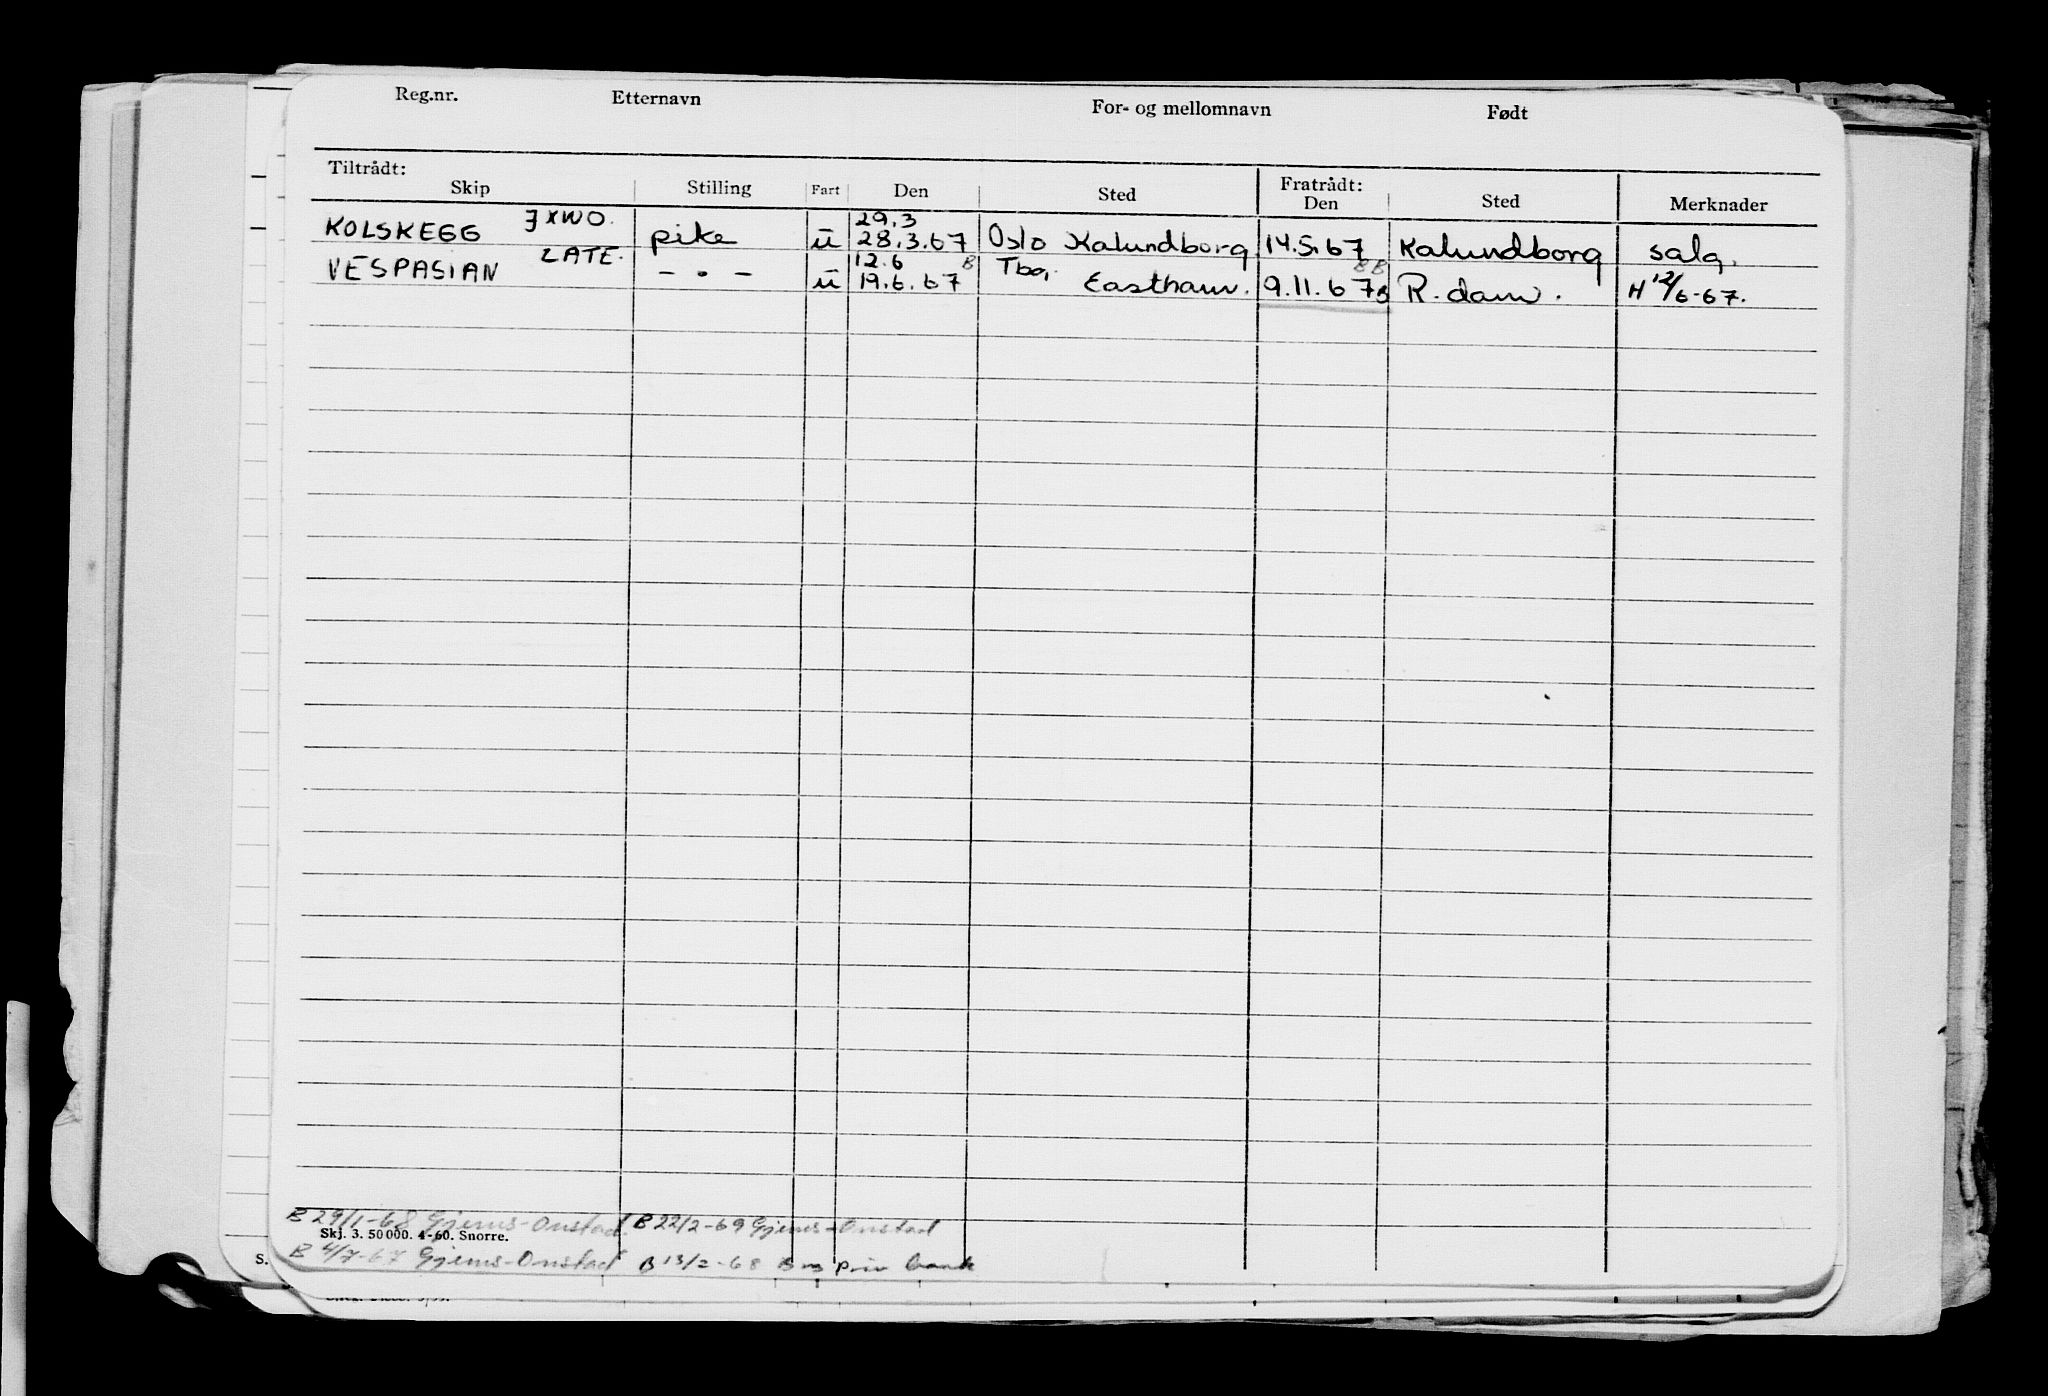 Reg.nr. Etternavn For- og mellomnavn Født
Tiltrådt: Fratrådt:
Skip Stilling Fart Den Sted Den Sted Merknader
JXWO. 29.3
KOLSKEGG pike ū 28.3.67 Oslo Kalundborg 14.5.67 Kalundborg salg.
LATE. 12.6 B BB
VESPASIAN - " - ū 19.6.67 Tbg, Eastham. 9.11.67 B R.dam. H 12/6-67.
B 29/1-68 Gjems-Onstad. B 22/2-69 Gjems-Onstad
Skj. 3. 50 000. 4-60. Snorre.
B 4/7-67 Gjems-Onstad B 13/2-68 priv bank
S.